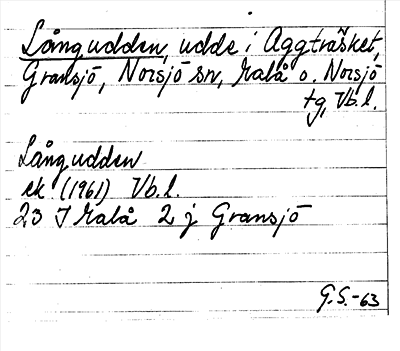 Långudden, udde i Aggträsket,
Gransjö, Norsjö sn, Malå o. Norsjö
tg, Vb.l.
Långudden
ek (1961) Vb.l.
23 I Malå 2 j Gransjö
G.S.-63